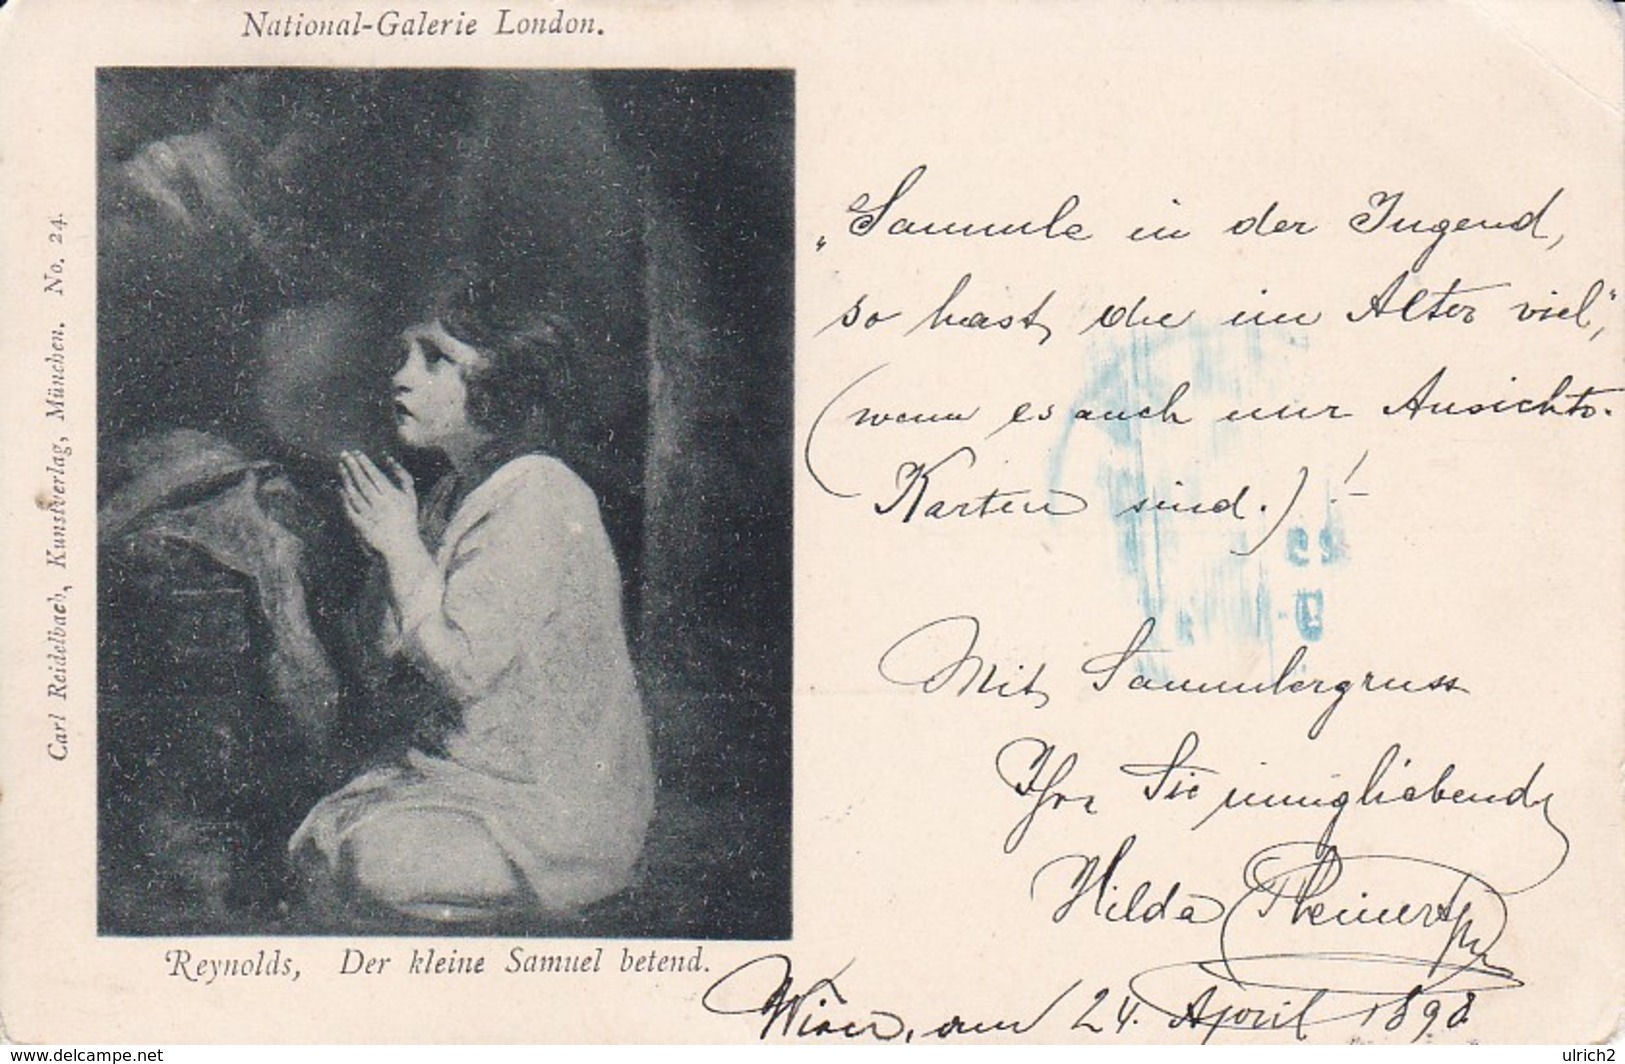 National-Galerie London.
Carl Reidelbach, Kunstverlag, München. No. 24.
„Sammle in der Jugend,
so hast du im Alter viel,"
(wenn es auch nur Ansichts-
Karten sind.)!–
Mit Sammlergruss
Ihre Sie inniglichebend
Hilda
Reynolds, Der kleine Samuel betend.
Wien, am 24. April 1898
ulrich2
delcampe.net